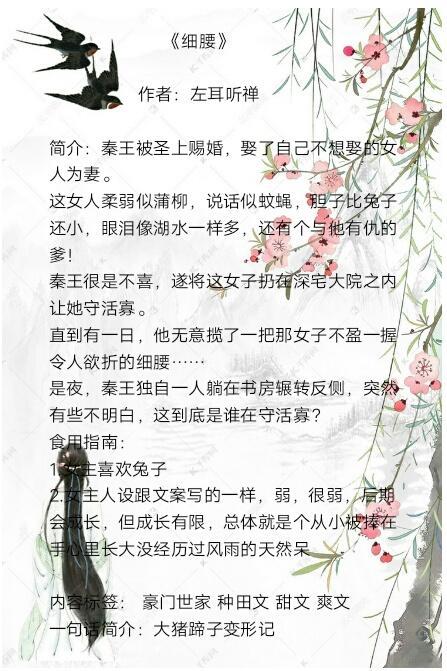 《细腰》
作者：左耳听禅
简介：秦王被圣上赐婚，娶了自己不想娶的女
人为妻。
这女人柔弱似蒲柳，说话似蚊蝇，胆子比兔子
还小，眼泪像湖水一样多，还有个与他有仇的
爹！
秦王很是不喜，遂将这女子扔在深宅大院之内
让她守活寡。
直到有一日，他无意揽了一把那女子不盈一握
令人欲折的细腰……
是夜，秦王独自一人躺在书房辗转反侧，突然
有些不明白，这到底是谁在守活寡？
食用指南：
1.女主喜欢兔子
2.女主人设跟文案写的一样，弱，很弱，后期
会成长，但成长有限，总体就是个从小被捧在
手心里长大没经历过风雨的天然呆
内容标签： 豪门世家 种田文 甜文 爽文
一句话简介：大猪蹄子变形记